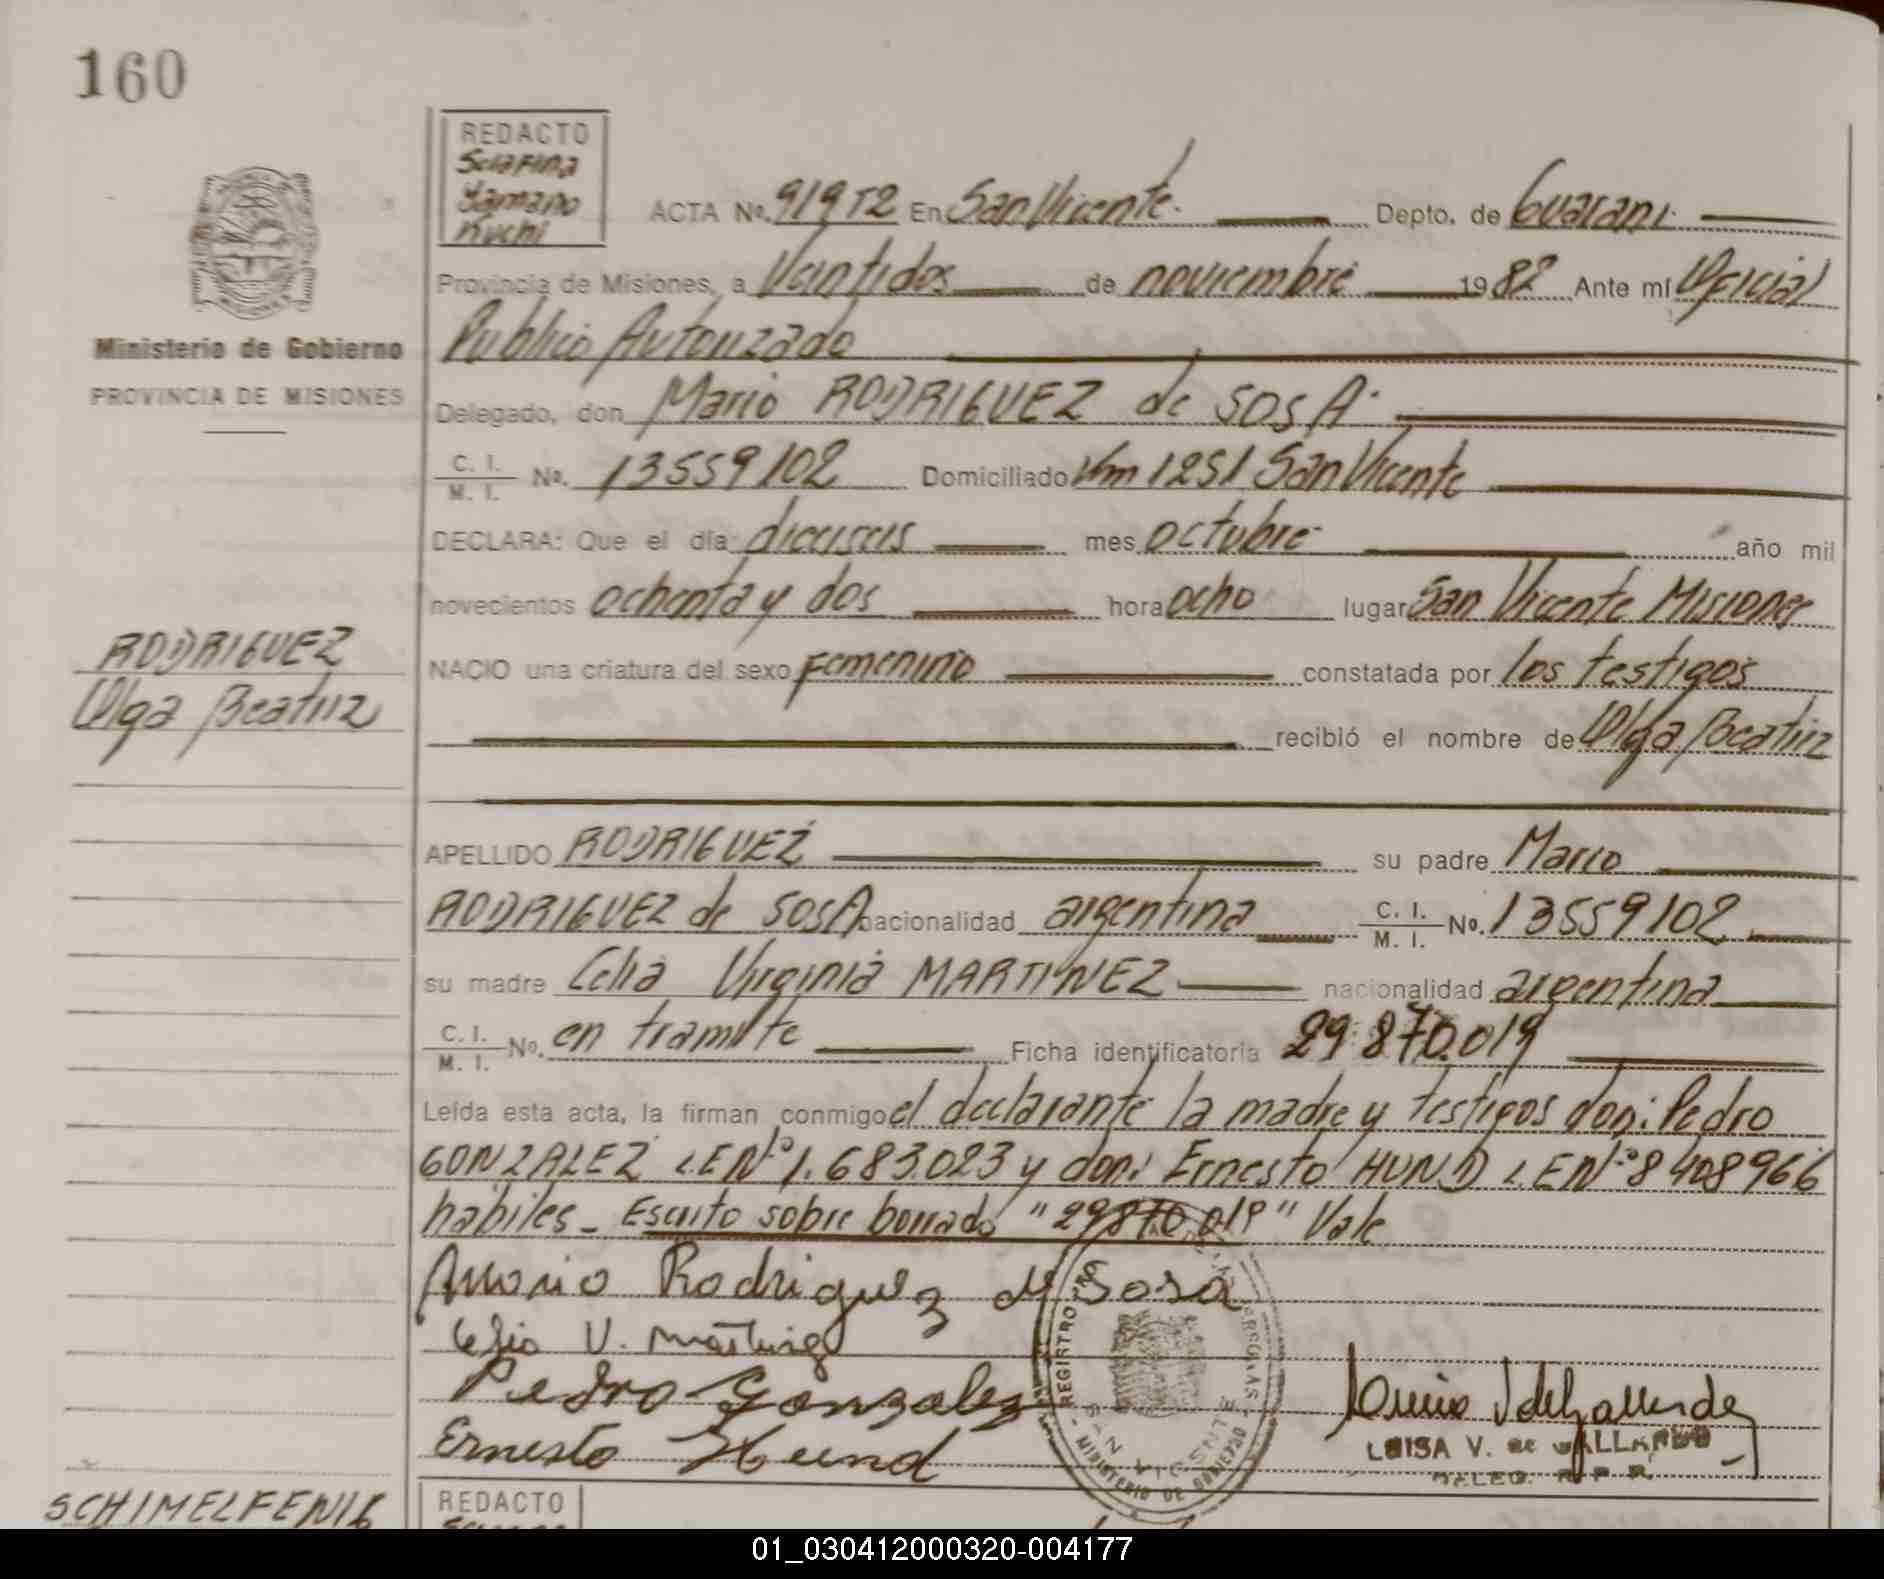 160
REDACTO
Serafina
Yamano
Kuchi
ACTA No. 919 T2 En San Vicente. Depto. de Guarani.
Provincia de Misiones, a Veintidos de noviembre 1982 Ante mí Oficial
Ministerio de Gobierno
PROVINCIA DE MISIONES
Publico Autorizado
Delegado, don Mario RODRIGUEZ de SOSA
C. I.
M. I. No. 13559102 Domiciliado Km 1251 San Vicente
DECLARA: Que el día dieciseis mes octubre año mil
novecientos ochenta y dos hora ocho lugar San Vicente Misiones
RODRIGUEZ
Olga Beatriz
NACIO una criatura del sexo femenino constatada por los testigos
recibió el nombre de Olga Beatriz
APELLIDO RODRIGUEZ su padre Mario
RODRIGUEZ de SOSA nacionalidad argentina C. I. M. I. No. 13559102
su madre Celia Virginia MARTINEZ nacionalidad argentina
C. I. M. I. No. en tramite Ficha identificatoria 29.870.019
Leída esta acta, la firman conmigo el declarante la madre y testigos don: Pedro
GONZALEZ L.E Nº 1.683.023 y don: Ernesto HUND L.E Nº 8408966
habiles - Escrito sobre borrado "29870.019" Vale
Mario Rodriguez de Sosa
Celia V. Martinez
Pedro Gonzalez
Ernesto Hund
REGISTRO PERSONAS
SAN VICENTE
MINISTERIO DE GOBIERNO
LUISA V. de GALLARDO
DELEG. R. P. P.
SCHIMELFENIG
REDACTO
01_030412000320-004177